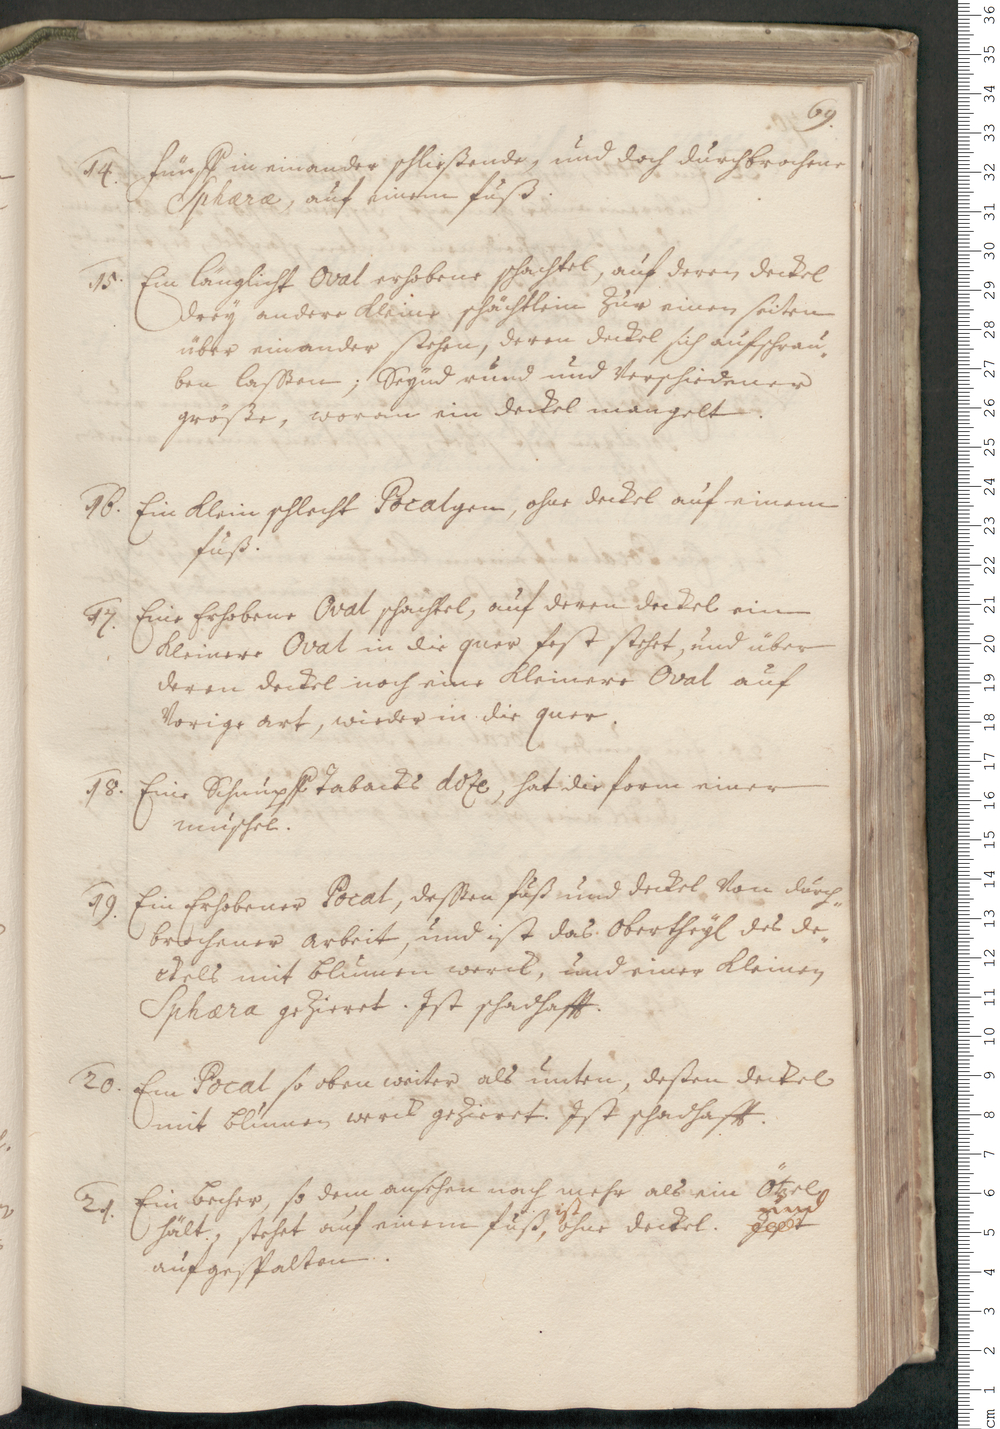 69.
14. Fünff in einander schließende, und doch durchbrochene
Sphæræ, auf einem fuß.
15. Ein länglicht Oval erhobene schachtel, auf deren deckel
drey andere kleine schächtlein zur einen seiten
über einander stehen, deren deckel sich aufschrau„
ben lassen; Seynd rund und Verschiedener
größe, woran ein deckel mangelt.
16. Ein klein schlecht Pocalgen, ohne deckel auf einem
fuß.
17. Eine Erhobene Oval schachtel, auf deren deckel eine
kleinere Oval in die quer fest stehet, und über
deren deckel noch eine kleinere Oval auf
Vorige art, wieder in die quer.
18. Eine Schnupff Tabacks doze, hat die form einer
muschel.
19. Ein Erhobener Pocal, dessen fuß und deckel Von durch„
brochener arbeit, und ist das Obertheyl des de„
ckels mit blumen werck, und einer kleinen
Sphæra gezieret. Ist schadhafft.
20. Ein Pocal so oben weiter als unten, deßen deckel
mit blumen werck gezieret. Ist schadhafft.
21. Ein becher, so dem ansehen nach mehr als ein Ötzel
hält, stehet auf einem fuß, ist ohne deckel. und
aufgespalten.